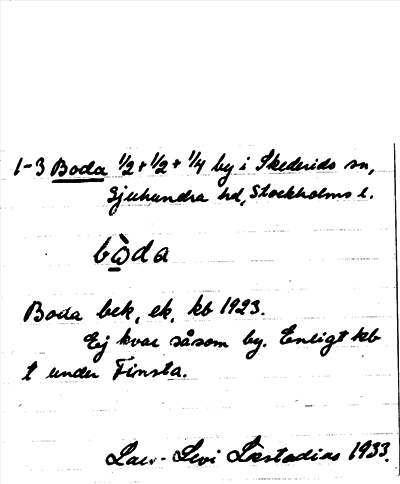 1-3 Boda 1/2 + 1/2 + 1/4 by i Skederids sn,
Sjuhundra hd, Stockholms l.
bo̱̊̀da
Boda bek, ek, kb 1923.
Ej kvar såsom by. Enligt kb
t under Finsta.
Lars-Levi Læstadius 1933.